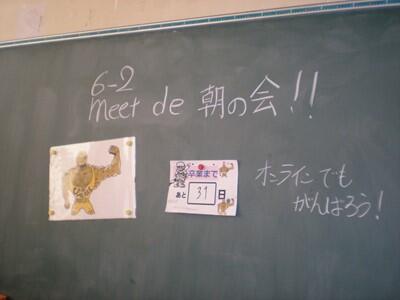 6-2
meet de 朝の会!!
卒業まで
あと 31 日
オンラインでも
がんばろう!